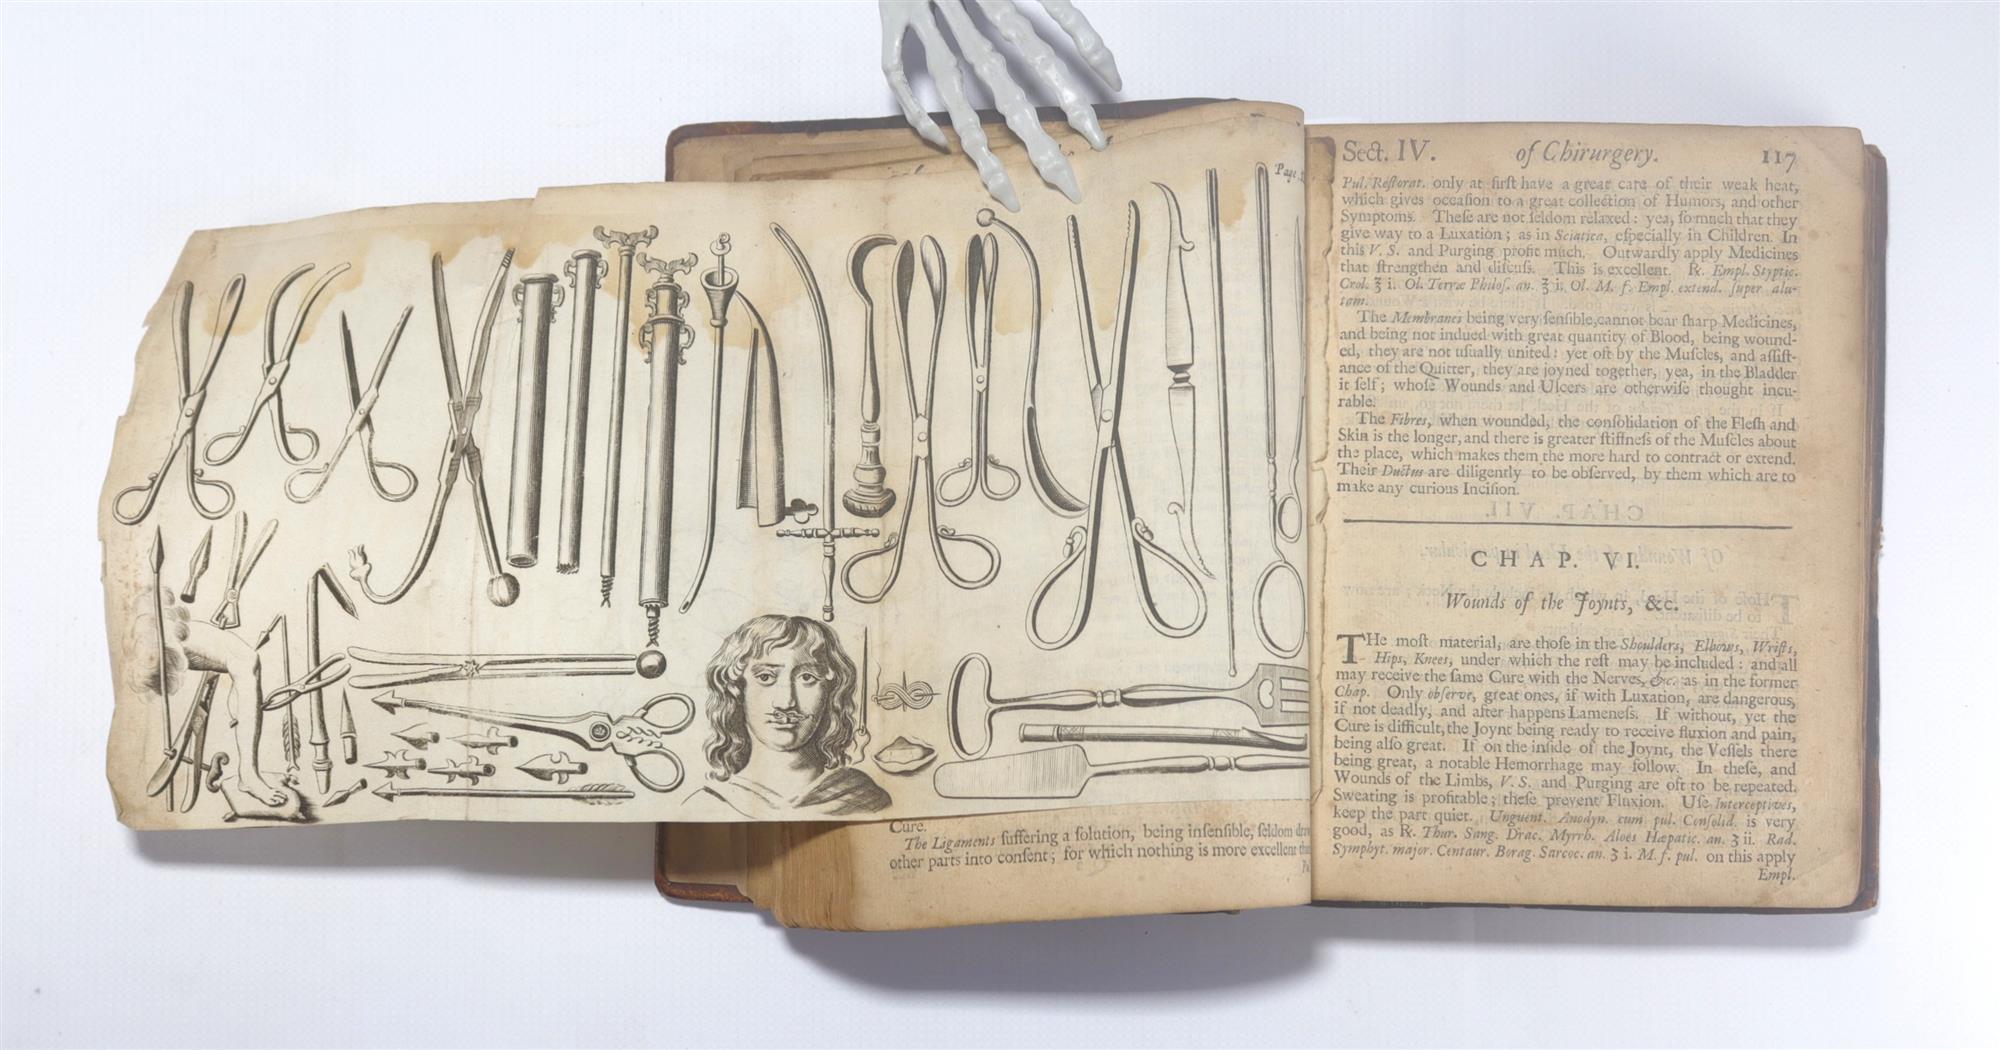 Page
Cure.
The Ligaments ſuffering a ſolution, being inſenſible, ſeldom
other parts into conſent; for which nothing is more excellent
Sect. IV. of Chirurgery. 117
Pul. Reſtorat. only at firſt have a great care of their weak heat,
which gives occaſion to a great collection of Humors, and other
Symptoms. Theſe are not ſeldom relaxed: yea, ſo much that they
give way to a Luxation; as in Sciatica, eſpecially in Children. In
this V. S. and Purging profit much. Outwardly apply Medicines
that ſtrengthen and diſcuſs. This is excellent. ℞. Empl. Styptic.
Crol. ℥ i. Ol. Terræ Philoſ. an. ʒ ii. Ol. M. f. Empl. extend. ſuper alu-
tam.
The Membranes being very ſenſible, cannot bear ſharp Medicines,
and being not indued with great quantity of Blood, being wound-
ed, they are not uſually united: yet oft by the Muſcles, and aſſiſt-
ance of the Quitter, they are joyned together, yea, in the Bladder
it ſelf; whoſe Wounds and Ulcers are otherwiſe thought incu-
rable.
The Fibres, when wounded, the conſolidation of the Fleſh and
Skin is the longer, and there is greater ſtiffneſs of the Muſcles about
the place, which makes them the more hard to contract or extend.
Their Ductus are diligently to be obſerved, by them which are to
make any curious Inciſion.
CHAP. VI.
Wounds of the Joynts, &c.
THe moſt material, are thoſe in the Shoulders, Elbows, Wriſts,
Hips, Knees, under which the reſt may be included: and all
may receive the ſame Cure with the Nerves, &c. as in the former
Chap. Only obſerve, great ones, if with Luxation, are dangerous,
if not deadly, and after happens Lameneſs. If without, yet the
Cure is difficult, the Joynt being ready to receive fluxion and pain,
being alſo great. If on the inſide of the Joynt, the Veſſels there
being great, a notable Hemorrhage may follow. In theſe, and
Wounds of the Limbs, V. S. and Purging are oft to be repeated.
Sweating is profitable; theſe prevent Fluxion. Uſe Interceptives,
keep the part quiet. Unguent. Anodyn. cum pul. Conſolid. is very
good, as ℞. Thur. Sang. Drac. Myrrh. Aloes Hæpatic. an. ʒ ii. Rad.
Symphyt. major. Centaur. Borag. Sarcoc. an. ʒ i. M. f. pul. on this apply
Empl.